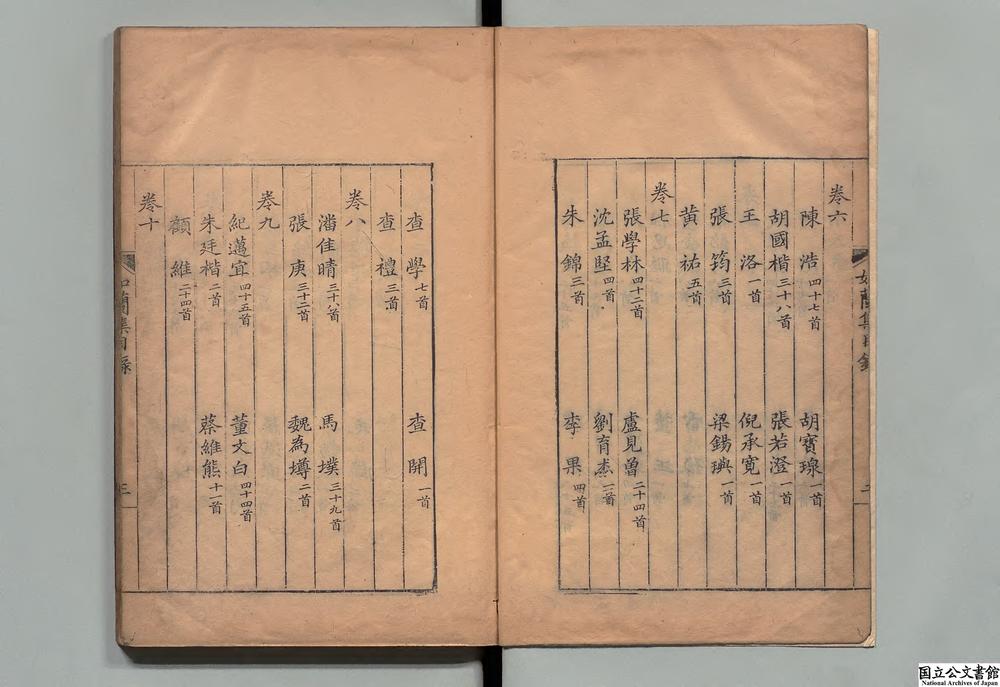 卷六
陳浩 四十七首 胡寶瑔 一首
胡國楷 三十八首 張若澄 一首
王洛 一首 倪承寬 一首
張筠 三首 梁錫璵 一首
黃祐 五首
卷七
張學林 四十二首 盧見曾 二十四首
沈孟堅 四首 劉育杰 二首
朱錦 三首 李果 四首
如蘭集目錄 二
查學 七首 查開 一首
查禮 三首
卷八
潘佳晴 三十八首 馬墣 三十九首
張庚 三十二首 魏為塼 二首
卷九
紀邁宜 四十五首 董文白 四十四首
朱廷楷 二首 蔡維熊 十一首
顧維 二十四首
卷十
如蘭集目錄 三
国立公文書館
National Archives of Japan